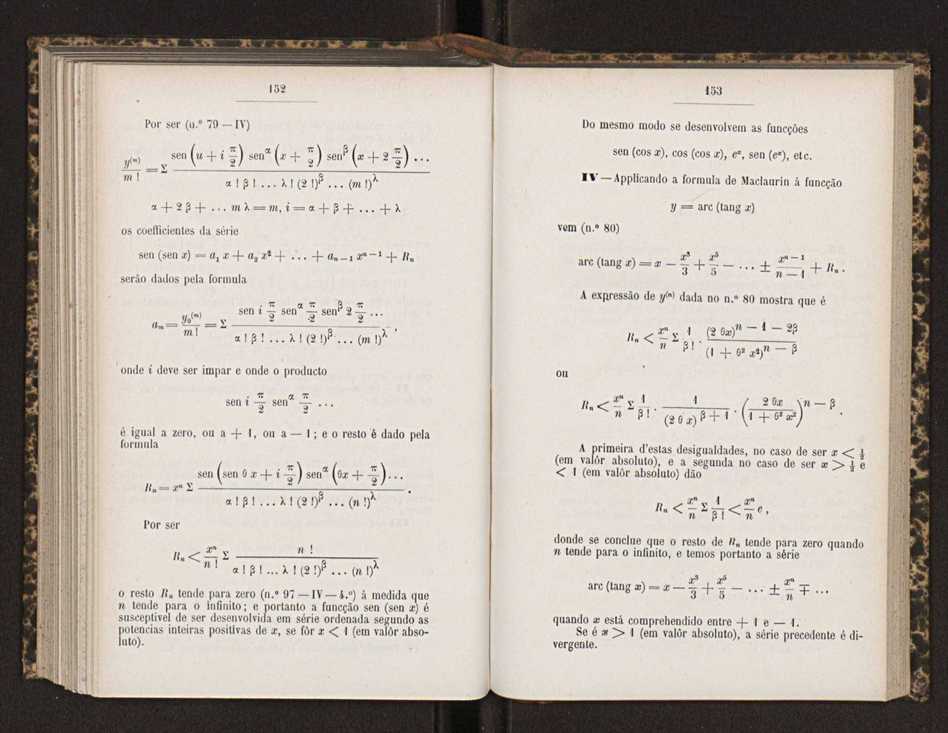 152
Por ser (n.º 79 — IV)
y⁽ᵐ⁾ / m ! = Σ sen (u + i π/2) senᵅ (x + π/2) senᵝ (x + 2 π/2) ... / α ! β ! ... λ ! (2 !)ᵝ ... (m !)^λ
α + 2 β + ... m λ = m, i = α + β + ... + λ
os coefficientes da série
sen (sen x) = a₁ x + a₂ x² + ... + aₙ₋₁ xⁿ⁻¹ + Rₙ
serão dados pela formula
aₘ = y₀⁽ᵐ⁾ / m ! = Σ sen i π/2 senᵅ π/2 senᵝ 2 π/2 ... / α ! β ! ... λ ! (2 !)ᵝ ... (m !)^λ ,
onde i deve ser impar e onde o producto
sen i π/2 senᵅ π/2 ...
é igual a zero, ou a + 1, ou a — 1 ; e o resto é dado pela
formula
Rₙ = xⁿ Σ sen (sen θ x + i π/2) senᵅ (θx + π/2) ... / α ! β ! ... λ ! (2 !)ᵝ ... (n !)^λ .
Por ser
Rₙ < xⁿ / n ! Σ n ! / α ! β ! ... λ ! (2 !)ᵝ ... (n !)^λ
o resto Rₙ tende para zero (n.º 97 — IV — 4.º) á medida que
n tende para o infinito ; e portanto a funcção sen (sen x) é
susceptivel de ser desenvolvida em série ordenada segundo as
potencias inteiras positivas de x, se fôr x < 1 (em valôr abso-
luto).
153
Do mesmo modo se desenvolvem as funcções
sen (cos x), cos (cos x), eˣ, sen (eˣ), etc.
IV — Applicando a formula de Maclaurin á funcção
y = arc (tang x)
vem (n.º 80)
arc (tang x) = x — x³/3 + x⁵/5 — ... ± xⁿ⁻¹ / n — 1 + Rₙ .
A expressão de y⁽ⁿ⁾ dada no n.º 80 mostra que é
Rₙ < xⁿ/n Σ 1/β ! . (2 θx)^(n — 1 — 2β) / (1 + θ² x²)^(n — β)
ou
Rₙ < xⁿ/n Σ 1/β ! . 1 / (2 θ x)^(β + 1) . (2 θx / 1 + θ² x²)^(n — β) .
A primeira d'estas desigualdades, no caso de ser x < ½
(em valôr absoluto), e a segunda no caso de ser x > ½ e
< 1 (em valôr absoluto) dão
Rₙ < xⁿ/n Σ 1/β ! < xⁿ/n e ,
donde se conclue que o resto de Rₙ tende para zero quando
n tende para o infinito, e temos portanto a série
arc (tang x) = x — x³/3 + x⁵/5 — ... ± xⁿ/n ∓ ...
quando x está comprehendido entre + 1 e — 1.
Se é x > 1 (em valôr absoluto), a série precedente é di-
vergente.